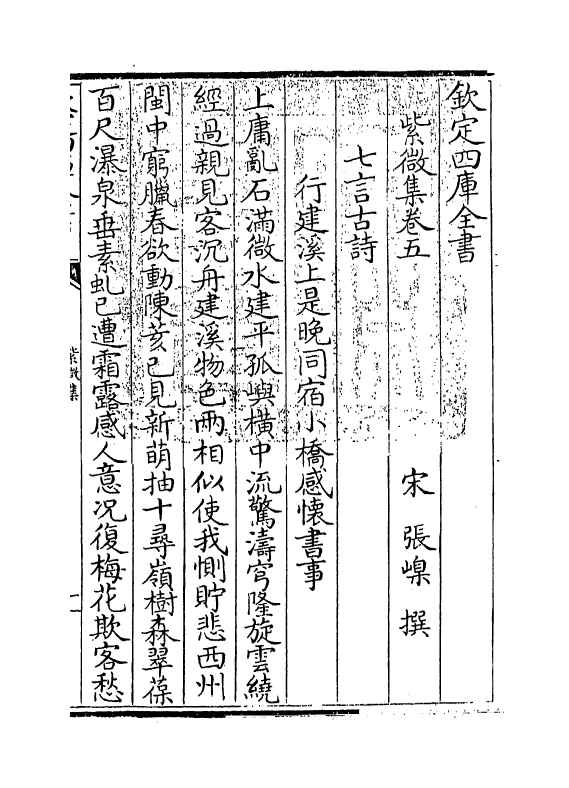 欽定四庫全書
紫微集卷五
宋 張嵲 撰
七言古詩
行建溪上是晚同宿小橋感懷書事
上庸亂石滿微水建平孤嶼橫中流驚濤穹隆旋雲繞
經過親見客沉舟建溪物色兩相似使我惻貯悲西州
閩中窮臘春欲動陳荄已見新萌抽十尋嶺樹森翠葆
百尺瀑泉垂素虬已遭霜露感人意况復梅花欺客愁
紫微集
一